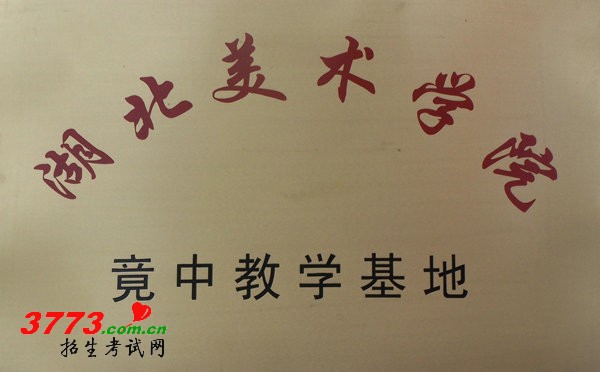 湖北美术学院
竟中教学基地
3773.com.cn
招生考试网